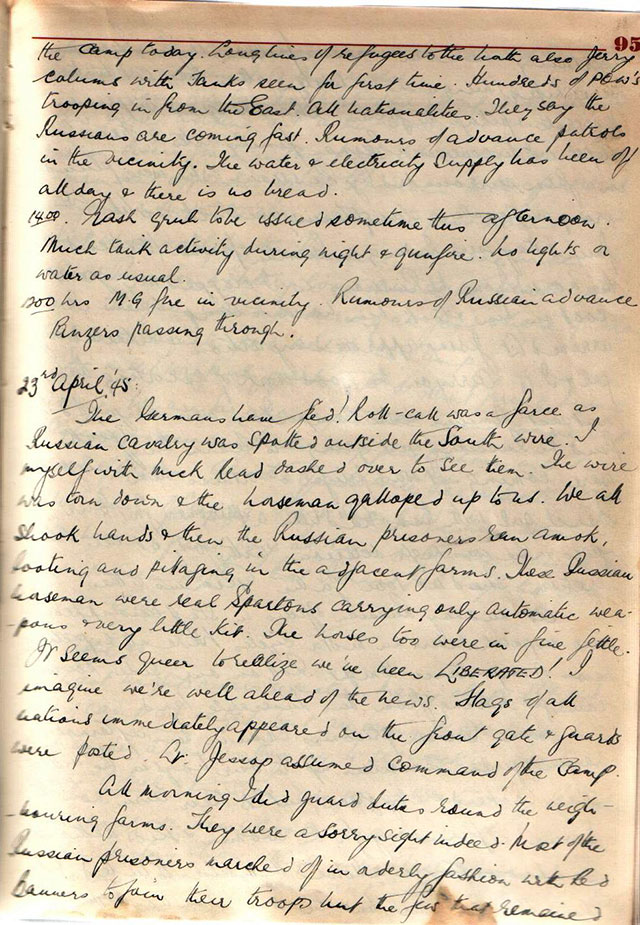 95
the camp today. Long lines of refugees to the north also Jerry
column with Tanks seen for first time. Hundreds of POW's
trooping in from the East. All nationalities. They say the
Russians are coming fast. Rumours of advance patrols
in the vicinity. The water & electricity supply has been off
all day & there is no bread.
1400. Hash grub to be issued sometime this afternoon.
Much tank activity during night & gunfire. No lights or
water as usual.
hrs M.G fire in vicinity. Rumours of Russian advance
Panzers passing through.
23rd April '45:
The Germans have fled! Roll-call was a farce as
Russian cavalry was spotted outside the South wire. I
myself with Mick Read dashed over to see them. The wire
was torn down & the horseman galloped up to us. We all
shook hands & then the Russian prisoners ran amok,
looting and pillaging in the adjacent farms. These Russian
horseman were real Spartons carrying only automatic wea-
-pons & very little kit. The horses too were in fine fettle.
It seems queer to realize we've been LIBERATED! I
imagine we're well ahead of the news. Flags of all
nations immediately appeared on the front gate & guards
were posted. Lt. Jessop assumed command of the camp.
All morning I did guard duties round the neigh-
-bouring farms. They were a sorry sight indeed. Most of the
Russian prisoners marched off in orderly fashion with Red
Banners to join their troops but the few that remained